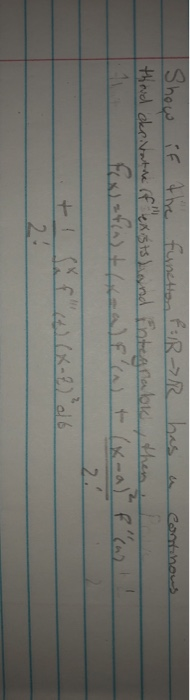 Show if the function f: ℝ → ℝ has a continous
third derivative (f''' exists) and integrable, then,
f(x) = f(a) + (x-a) f'(a) + (x-a)² f''(a) +
2!
+ 1 ∫ₐˣ f'''(t) (x-t)² dt
2!